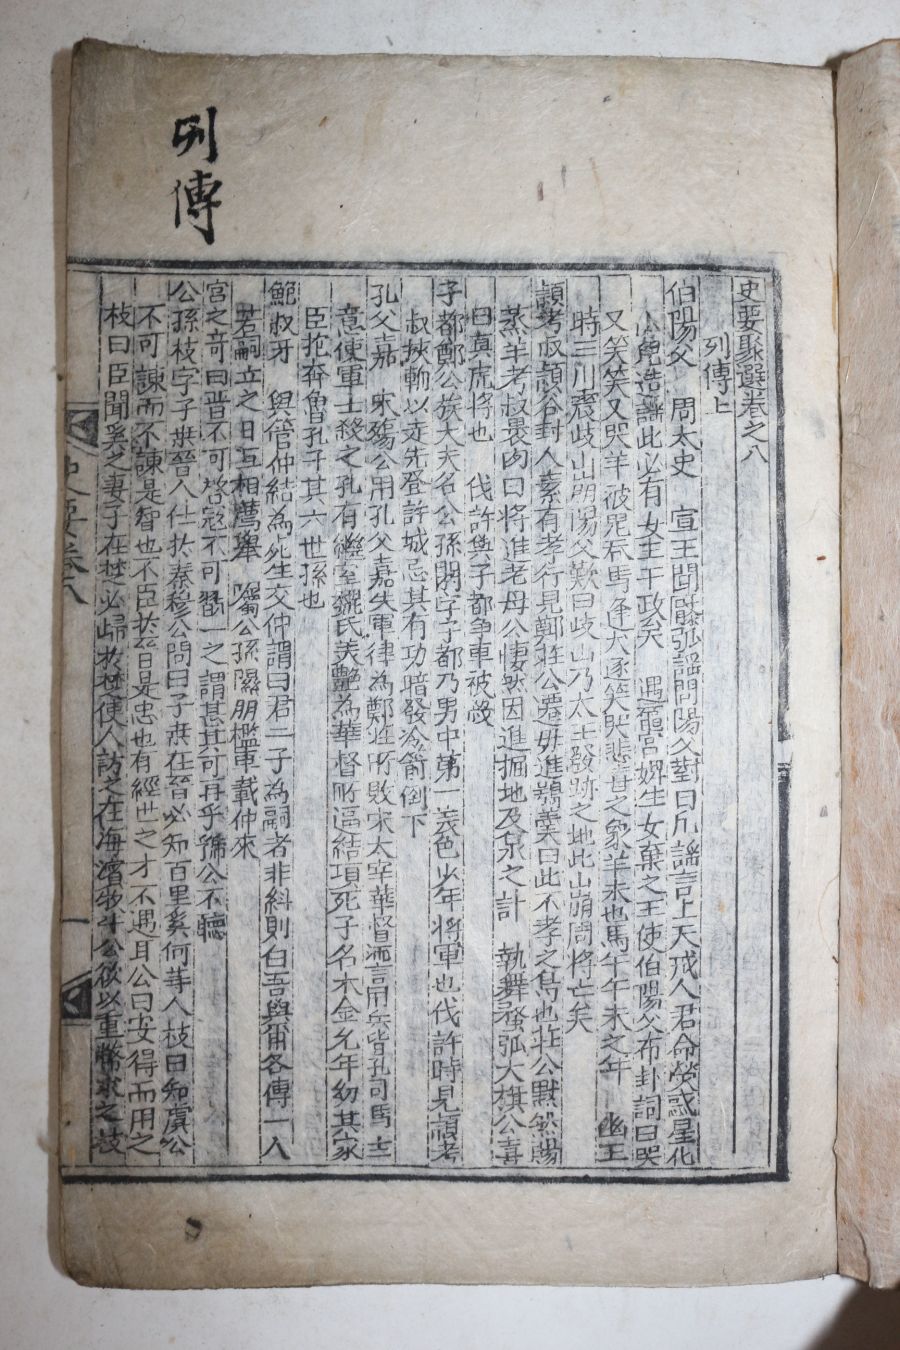 列傳
史要聚選卷之八
列傳上
伯陽父 周太史 宣王聞檿弧謠問陽父對曰凡謠言上天戒人君命熒惑星化
小兒造謠此必有女主干政矣 遇宮婢生女棄之王使伯陽父布卦詞曰哭
又笑笑又哭羊被鬼吞馬逢犬逐笑哭悲喜之象羊未也馬午午未之年 幽王
時三川震歧山崩陽父歎曰歧山乃太王發跡之地此山崩周將亡矣
頴考叔頴谷封人素有孝行見鄭莊公遷母進鴞羹曰此不孝之鳥也莊公默然賜
蒸羊考叔裹肉曰將進老母公悽然因進掘地及泉之計 執舞蝥弧大旗公喜
曰真虎將也 伐許與子都爭車被殺
子都鄭公族大夫名公孫閼字子都乃男中第一美色少年將軍也伐許時見頴考
叔挾輈以走先登許城忌其有功暗發冷箭倒下
孔父嘉 宋殤公用孔父嘉失軍律為鄭莊所敗宋太宰華督流言用兵皆孔司馬主
意使軍士殺之孔有繼室氏美艶為華督所逼結項死子名木金允年幼其家
臣抱奔魯孔子其六世孫也
鮑叔牙 與管仲結為死生交仲謂曰君二子為嗣者非糾則白吾與爾各傳一人
若嗣立之日互相薦擧 囑公孫隰朋檻車載仲來
宮之奇曰晋不可啓寇不可翫一之謂甚其可再乎虢公不聽
公孫枝字子桑晉人仕於秦穆公問曰子桑在晉必知百里奚何等人枝曰知虞公
不可諫而不諫是智也不臣於晉是忠也有經世之才不遇耳公曰安得而用之
枝曰臣聞奚之妻子在楚必歸於楚使人訪之在海濱牧牛公欲以重幣求之枝
史要卷八
一